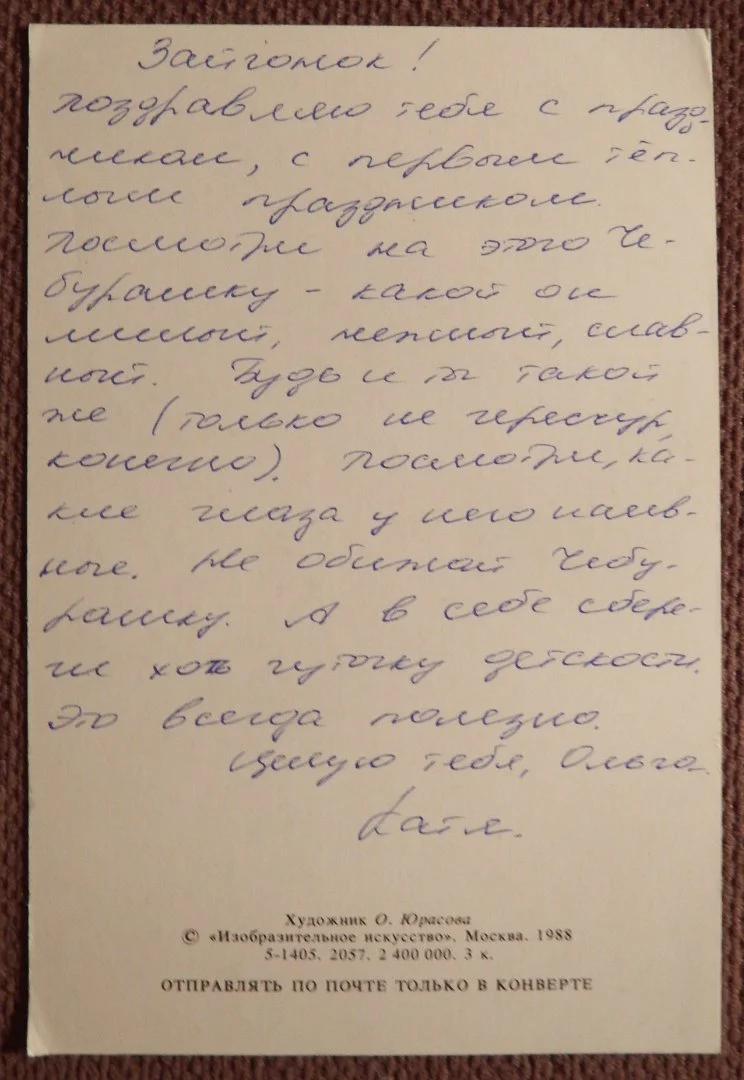 Зайчонок!
Поздравляю тебя с празд-
ником, с первым тёп-
лым праздником.
Посмотри на этого Че-
бурашку - какой он
милый, нежный, слав-
ный. Будь и ты такой
же (только не чересчур,
конечно). Посмотри, ка-
кие глаза у него наив-
ные. Не обижай Чебу-
рашку. А в себе сбере-
ги хоть чуточку детскости.
Это всегда полезно.
Целую тебя, Ольга.
Катя.
Художник О. Юрасова
© «Изобразительное искусство». Москва. 1988
5-1405. 2057. 2 400 000. 3 к.
ОТПРАВЛЯТЬ ПО ПОЧТЕ ТОЛЬКО В КОНВЕРТЕ